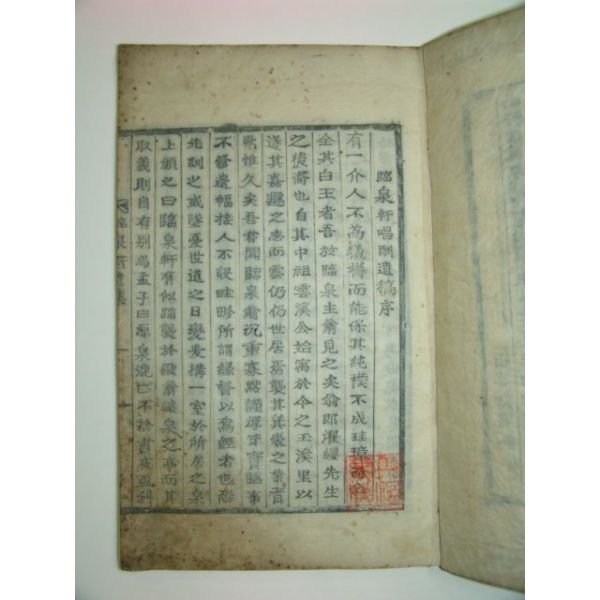 臨泉軒唱酬遺稿序
有一介人不爲犧樽而能保其純樸不成珪璋而
全其白玉者吾於臨泉主翁見之矣翁卽濯纓先生
之後裔也自其中祖雲溪公始寓於今之玉溪里以
遂其嘉遯之志而雲仍仍世居焉襲其箕裘之業者
厥惟久矣吾嘗聞臨泉翁沉重寡默謹厚
不修邊幅接人不設畦畛所謂緣督以爲經者也
先訓之或墜憂世道之日變爰構一室於所居之泉
上額之曰臨泉軒有似蹈襲於歐翁釀泉之亭而其
取義則自有別焉孟子曰源泉混混不舍晝夜盈科
臨泉軒遺集
一